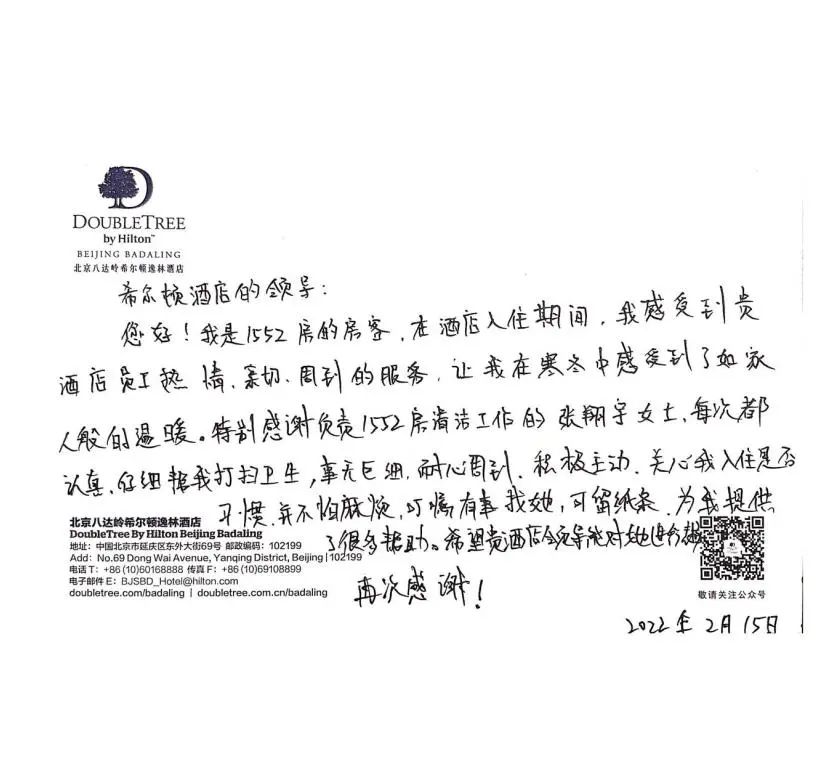 DOUBLETREE
by Hilton™
BEIJING BADALING
北京八达岭希尔顿逸林酒店
希尔顿酒店的领导:
您好!我是1552房的房客,在酒店入住期间,我感受到贵
酒店员工热情、亲切、周到的服务,让我在寒冬中感受到了如家
人般的温暖。特别感谢负责1552房清洁工作的张翔宇女士,每次都
认真、仔细帮我打扫卫生,事无巨细,耐心周到、积极主动、关心我入住是否
习惯,并不怕麻烦,叮嘱有事找她,可留纸条,为我提供
了很多帮助。希望贵酒店领导能对她进行
再次感谢!
2022年2月15日
北京八达岭希尔顿逸林酒店
DoubleTree By Hilton Beijing Badaling
地址:中国北京市延庆区东外大街69号 邮政编码:102199
Add: No.69 Dong Wai Avenue, Yanqing District, Beijing | 102199
电话 T: +86 (10)60168888 传真 F: +86 (10)69108899
电子邮件 E: BJSBD_Hotel@hilton.com
doubletree.com/badaling | doubletree.com.cn/badaling
敬请关注公众号